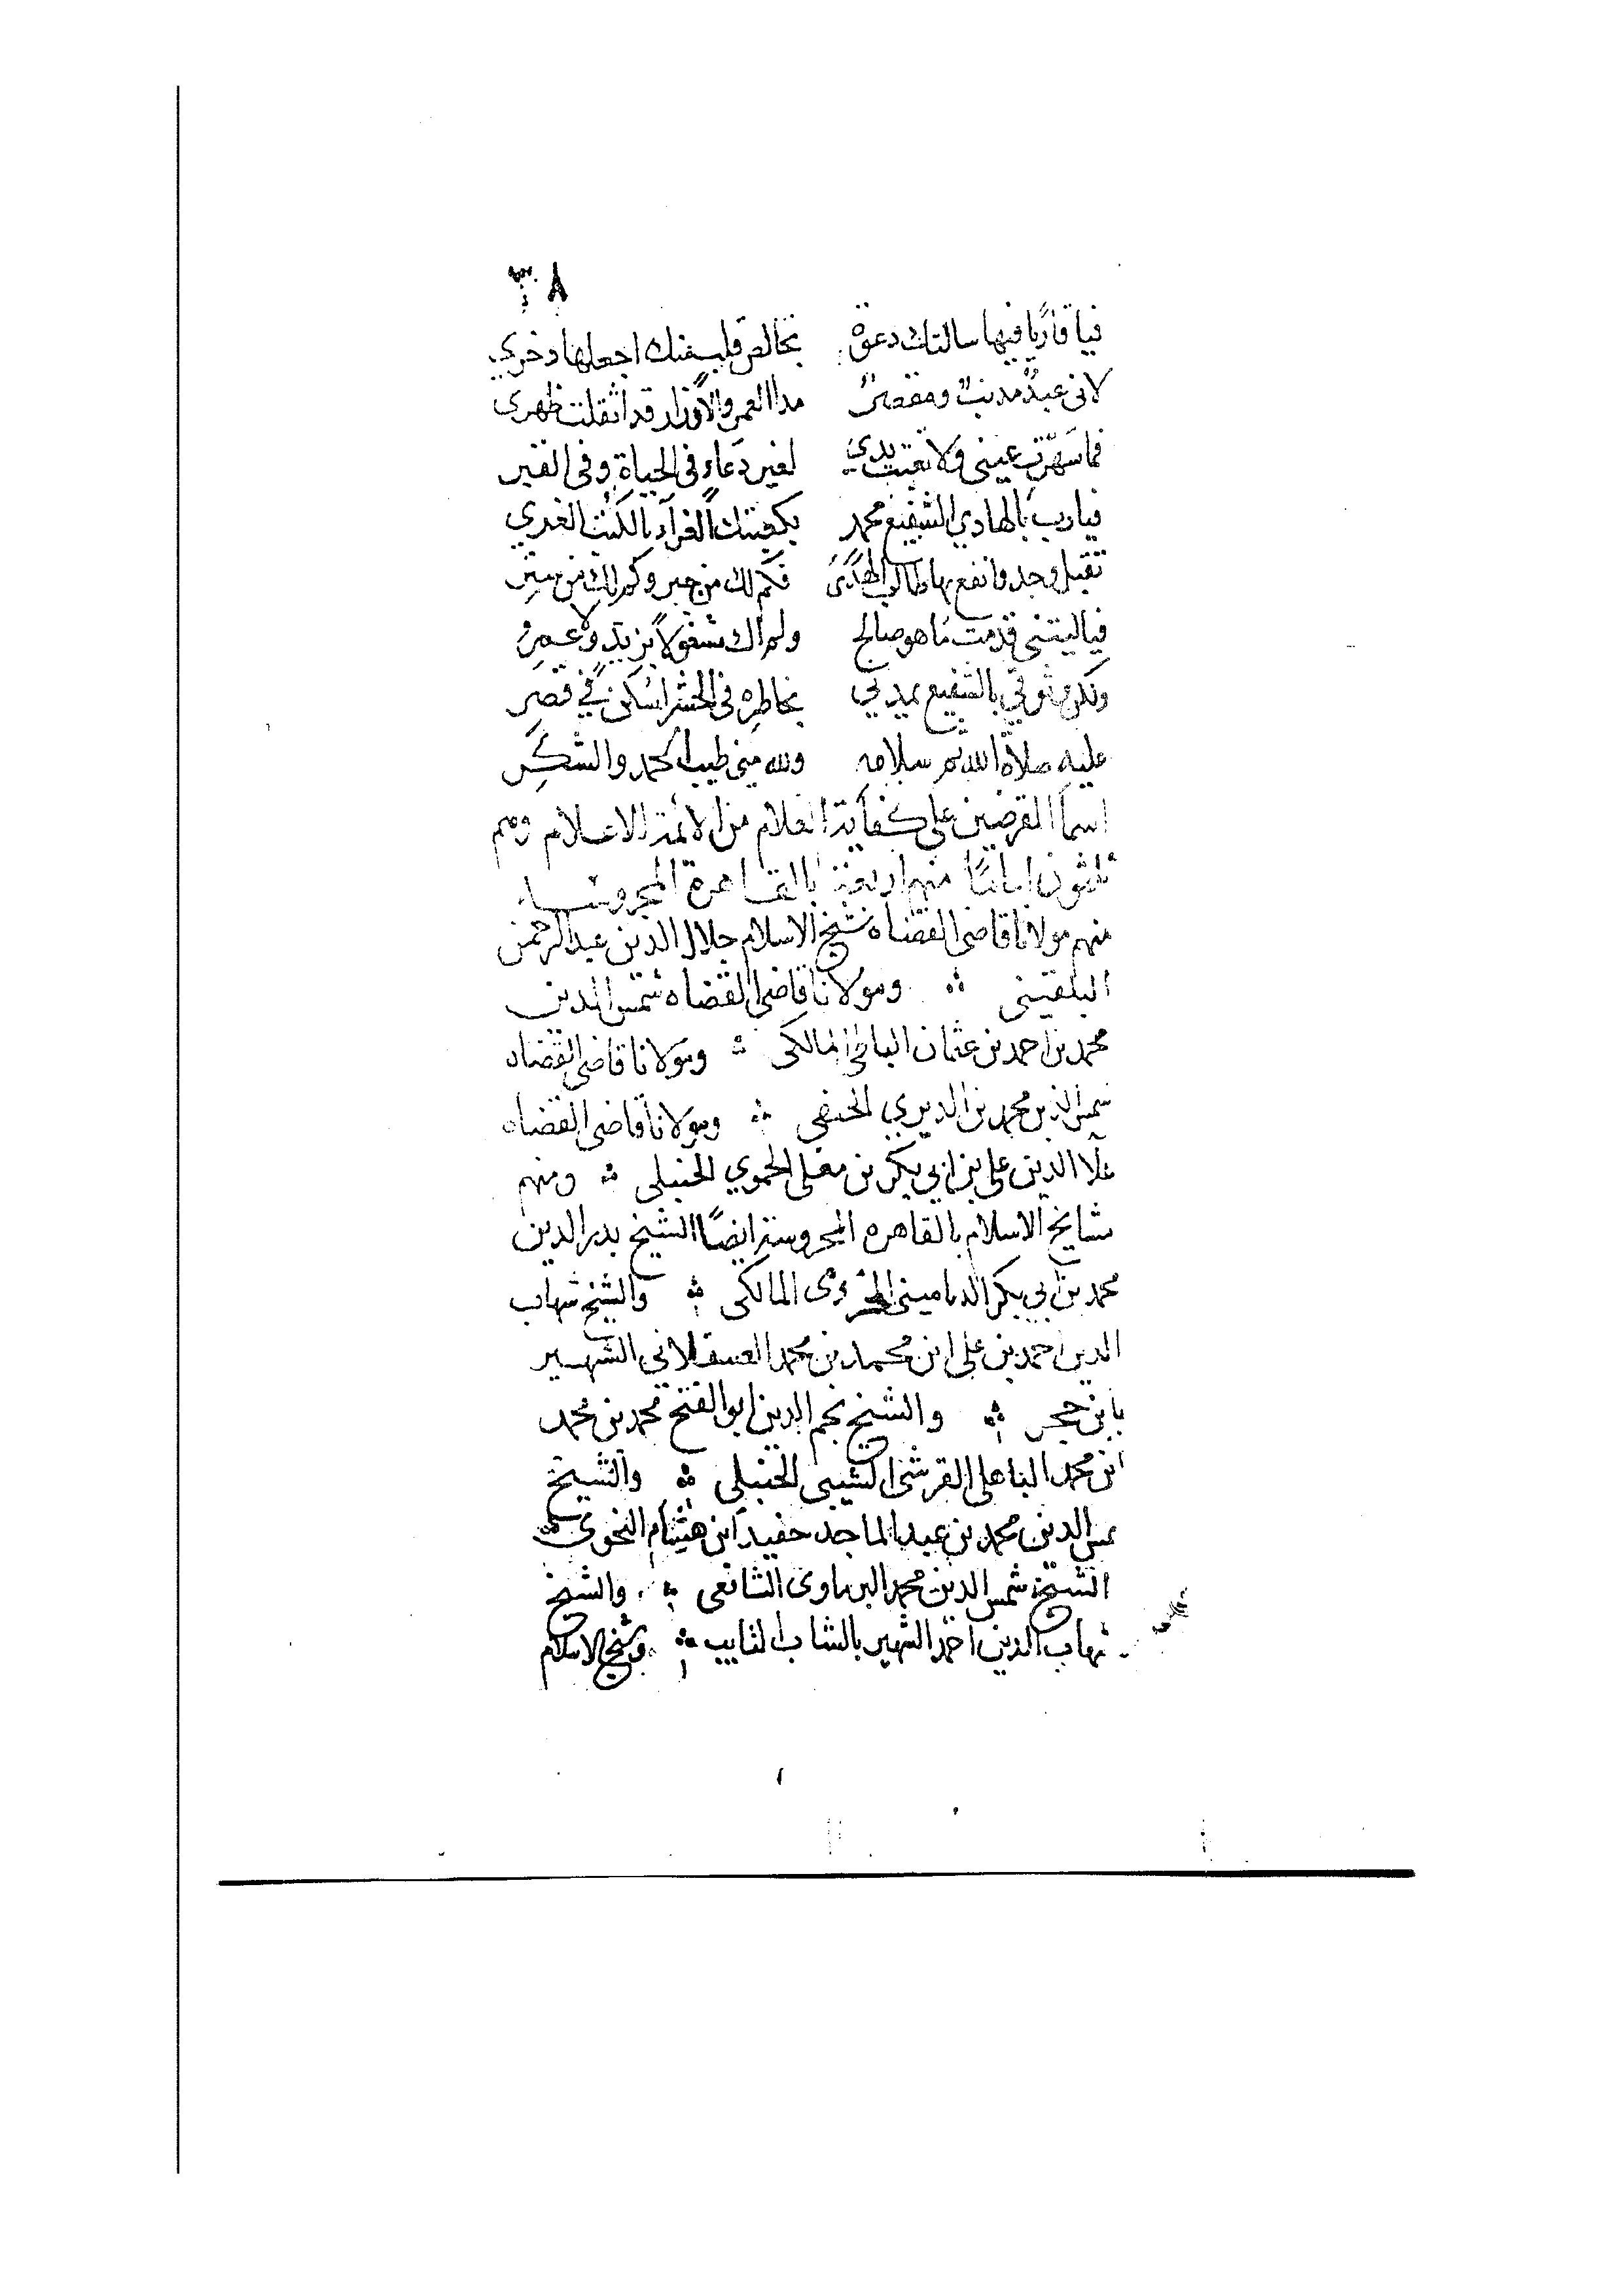 ٣٨
فيا قارئا فيها سالتك دعوة بخالص قلب منك اجعلها دخري
لاني عبد مدنب ومقصر مدا العمر والاوزار قد اثقلت ظهري
فما سهرت عيني ولا تعبت يدي لغير دعاء في الحياة وفي القبر
فيارب بالهادي الشفيع محمد بكعبتك الغراء بالكتب الغر
تقبل وجد وانفع بها طالب الهدى فكم لك من جبر وكم لك من ستر
فيا ليتني قدمت ما هو صالح ولم اك مشغولا بزيد ولا عمرو
ولكن وثوقي بالشفيع يمدني بخاطره في الحشر اسكن في قصر
عليه صلاة الله ثم سلامه ولله مني طيب الحمد والشكر
اسما المقرضين على كفاية الغلام من الائمة الاعلام وهم
ثلثون اماما منهم اربعة بالقاهرة المحروسة
منهم مولانا قاضي القضاه شيخ الاسلام جلال الدين عبد الرحمن
البلقيني ومولانا قاضي القضاه شمس الدين
محمد بن احمد بن عثمان البساطي المالكي ومولانا قاضي القضاه
شمس الدين محمد بن الديري الحنفي ومولانا قاضي القضاه
علا الدين علي بن ابي بكر بن مغلي الحموي الحنبلي ومنهم
مشايخ الاسلام بالقاهره المحروسة ايضا الشيخ بدر الدين
محمد بن ابي بكر الدماميني المخزومى المالكى والشيخ شهاب
الدين احمد بن على ابن محمد بن محمد العسقلاني الشهير
بابن حجر والشيخ نجم الدين ابو الفتح محمد بن محمد
ابن محمد الباهلي القرشي الحنبلي والشيخ
شمس الدين محمد بن عبد الماجد حفيد ابن هشام النحوي
الشيخ شمس الدين محمد البرماوى الشافعى والشيخ
شهاب الدين احمد الشهير بالشاب التايب وشيخ الاسلام